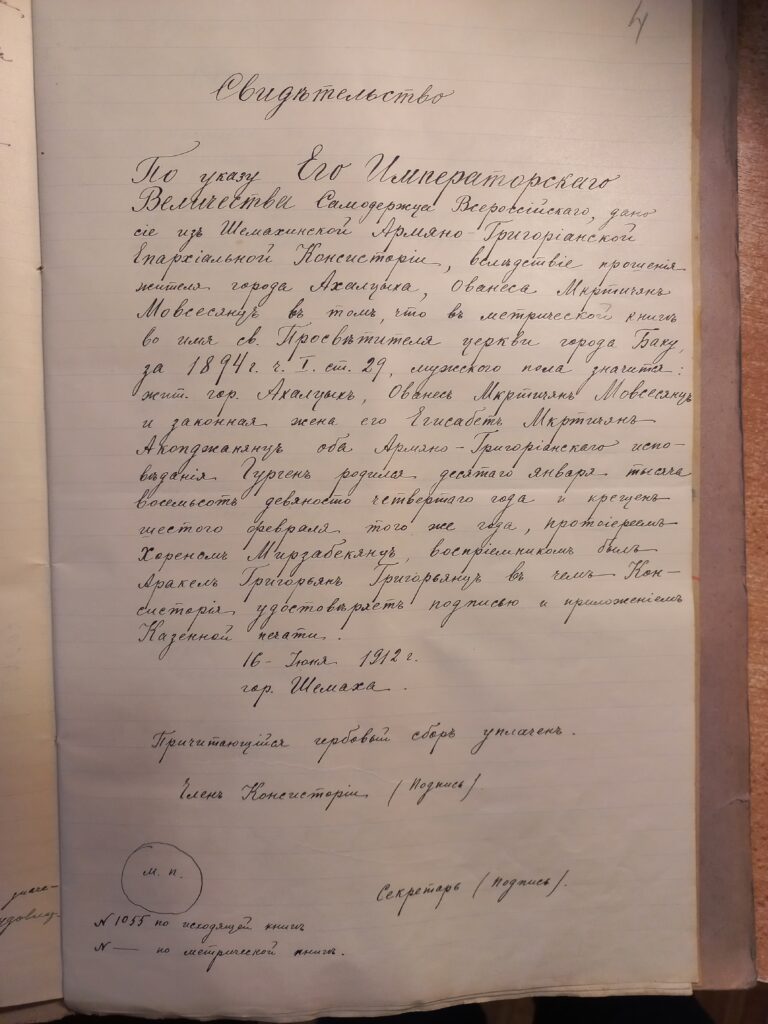 4
Свидѣтельство
По указу Его Императорскаго
Величества Самодержца Всероссійскаго, дано
сіе изъ Шемахинской Армяно-Григоріанской
Епархіальной Консисторіи, вслѣдствіе прошенія
жителя города Ахалцыха, Ованеса Мкртичянъ
Мовсесянцъ въ томъ, что въ метрической книгѣ
во имя св. Просвѣтителя церкви города Баку,
за 1894 г. ч. I. ст. 29, мужского пола значится:
жит. гор. Ахалцыхъ, Ованесъ Мкртичянъ Мовсесянцъ
и законная жена его Егисабетъ Мкртичянъ
Акопджанянцъ оба Армяно-Григоріанскаго испо-
вѣданія Гургенъ родился десятаго января тысяча
восемьсотъ девяносто четвертаго года и крещенъ
шестого февраля того же года, протоіереемъ
Хореномъ Мирзабекянцъ, воспріемникомъ былъ
Аракелъ Григорьянъ Григорьянцъ въ чемъ Кон-
систорія удостовѣряетъ подписью и приложеніемъ
Казенной печати.
16 - Іюня 1912 г.
гор. Шемаха.
Причитающійся гербовый сборъ уплаченъ.
Членъ Консисторіи (Подпись)
м. п.
Секретарь (Подпись).
N 1055 по исходящей книгѣ
N — по метрической книгѣ.